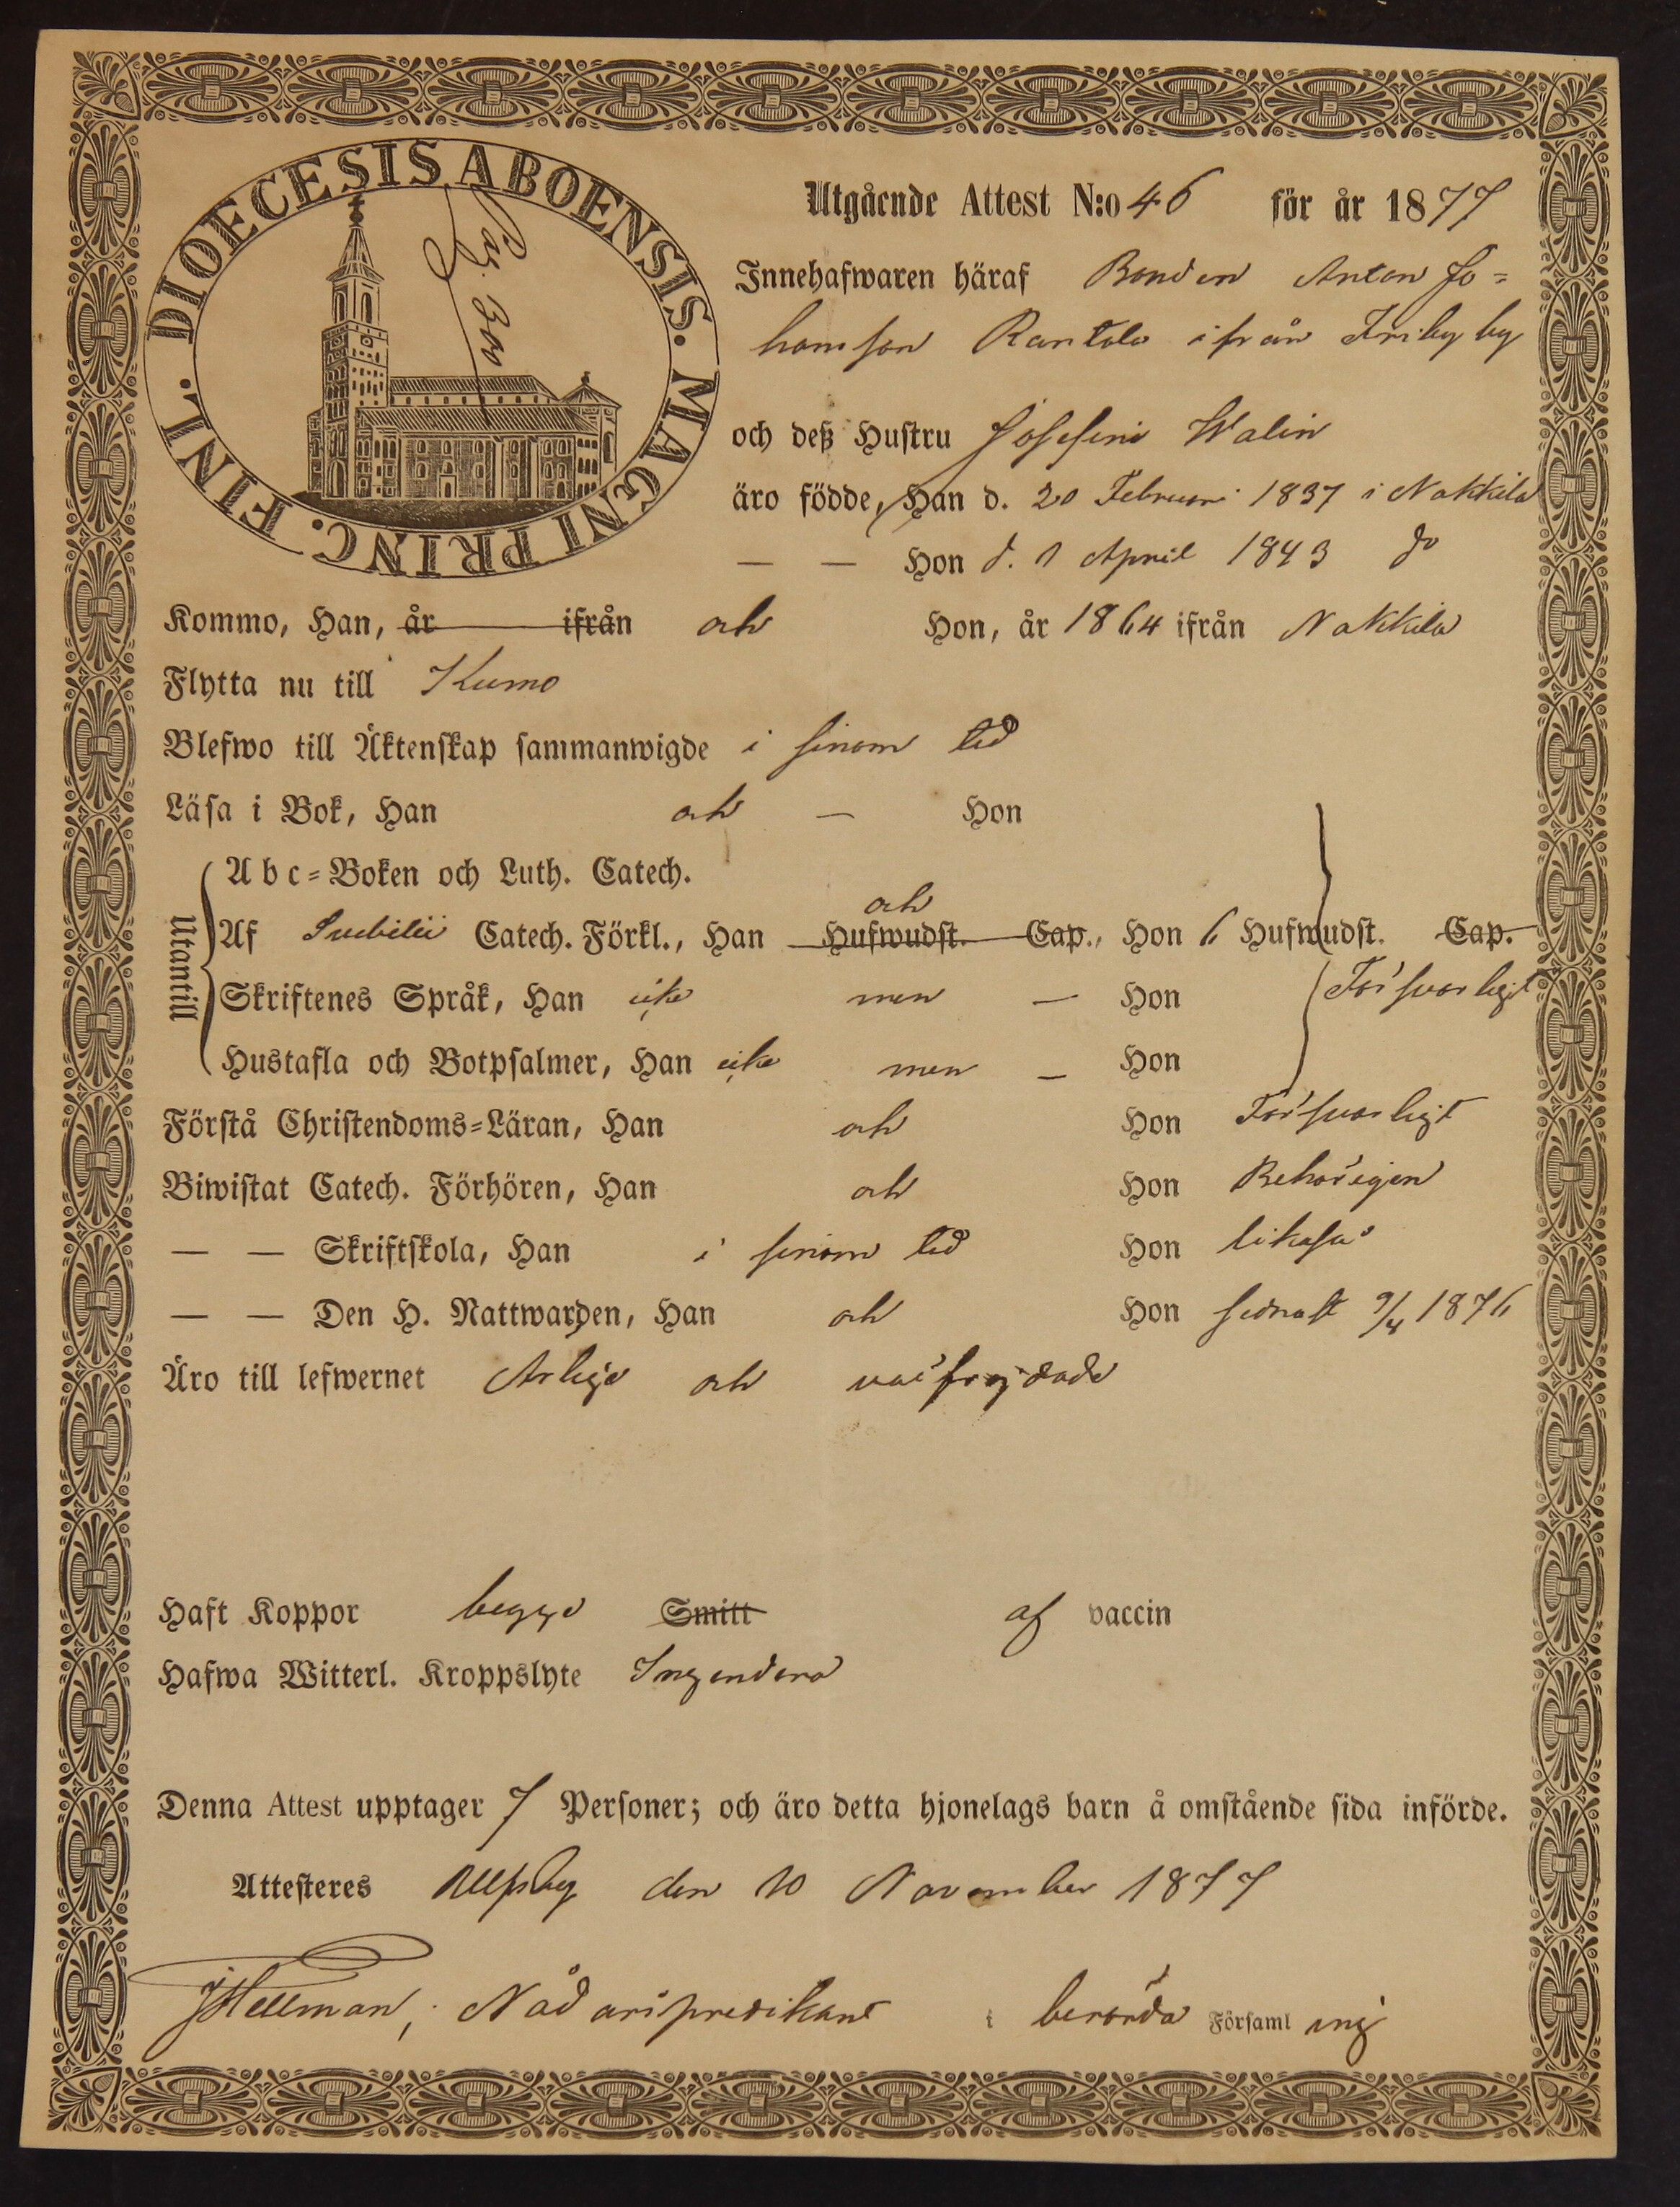 DIOECESIS ABOENSIS. MAGNI PRINC. FINL.
Pag. 300
Utgående Attest N:o 46 för år 1877
Innehafwaren häraf Bonden Anton Jo=
hansson Rantala ifrån Friby by
och deß Hustru Josefina Walin
äro födde, Han d. 20 Februari 1837 i Nakkila
— — Hon d. 1 April 1843 do
Kommo, Han, år ifrån och Hon, år 1864 ifrån Nakkila
Flytta nu till Kumo
Blefwo till Äktenskap sammanwigde i sinom tid
Läsa i Bok, Han och — Hon
Utantill
Abc=Boken och Luth. Catech.
och
Af Svebilii Catech. Förkl., Han Hufwudst. Cap., Hon 6 Hufwudst. Cap.
Skriftenes Språk, Han icke men — Hon Försvarligt
Hustafla och Botpsalmer, Han icke men — Hon
Förstå Christendoms=Läran, Han och Hon Försvarligt
Biwistat Catech. Förhören, Han och Hon Behörigen
— — Skriftskola, Han i sinom tid Hon likaså
— — Den H. Nattwarden, Han och Hon sednast 9/4 1876
Äro till lefwernet Ärliga och välfrejdade
Haft Koppor begge Smitt af vaccin
Hafwa Witterl. Kroppslyte Ingendera
Denna Attest upptager 7 Personer; och äro detta hjonelags barn å omstående sida införde.
Attesteres Ulfsby den 10 November 1877
JHellman, Nådårspredikant i berörda Församl ing